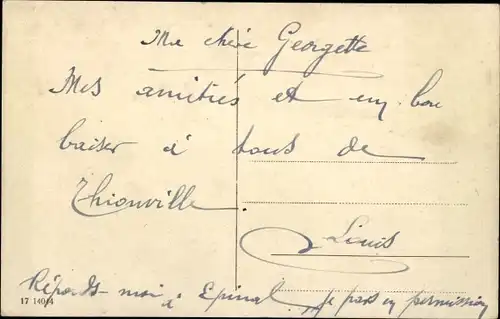 Ma chère Georgette
Mes amitiés et un bon
baiser à tous de
Thionville.
Louis
Réponds-moi à Epinal, je pars en permission
17 14044